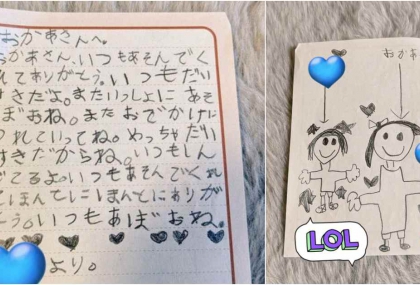 おかあさんへ。
おかあさん。いつもあそんでく
れてありがとう。いつもだい
すきだよ。またいっしょにあそ
ぼおね。またおでかけに
つれていってね。めっちゃだい
すきだからね。いつもしん
でてるよ。いつもあそんでくれ
てほんとにほんとにありが
とう。いつもあぼおね。
より。
おかあ
LOL